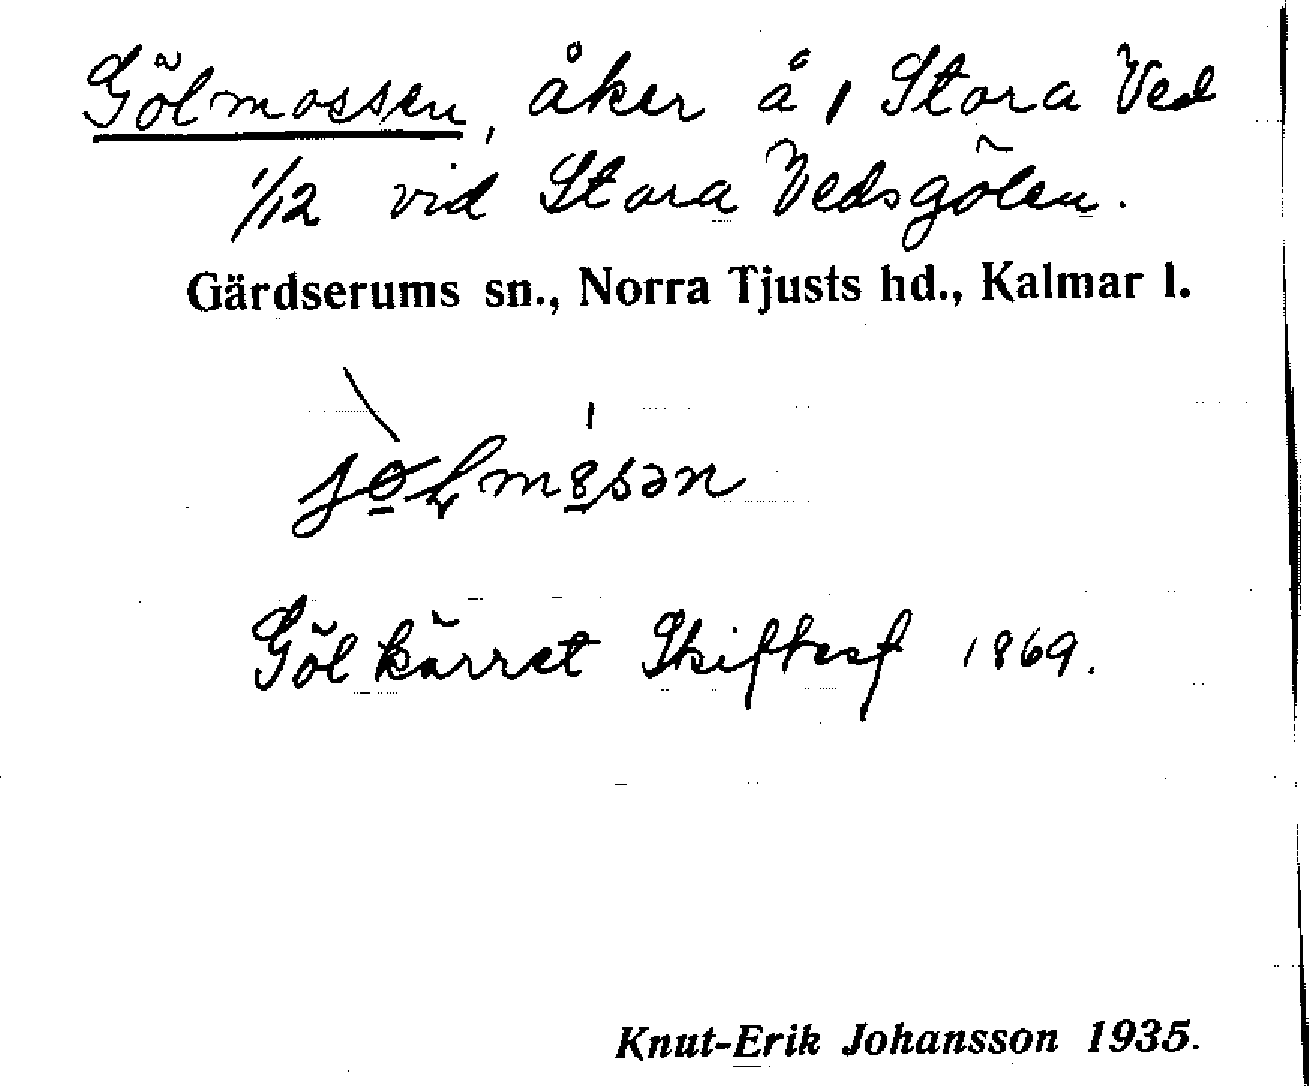 Gölmossen, åker å 1 Stora Ved
1/12 vid Stora Vedsgölen.
Gärdserums sn., Norra Tjusts hd., Kalmar l.
Gölkärret Skiftesf 1869.
Knut-Erik Johansson 1935.